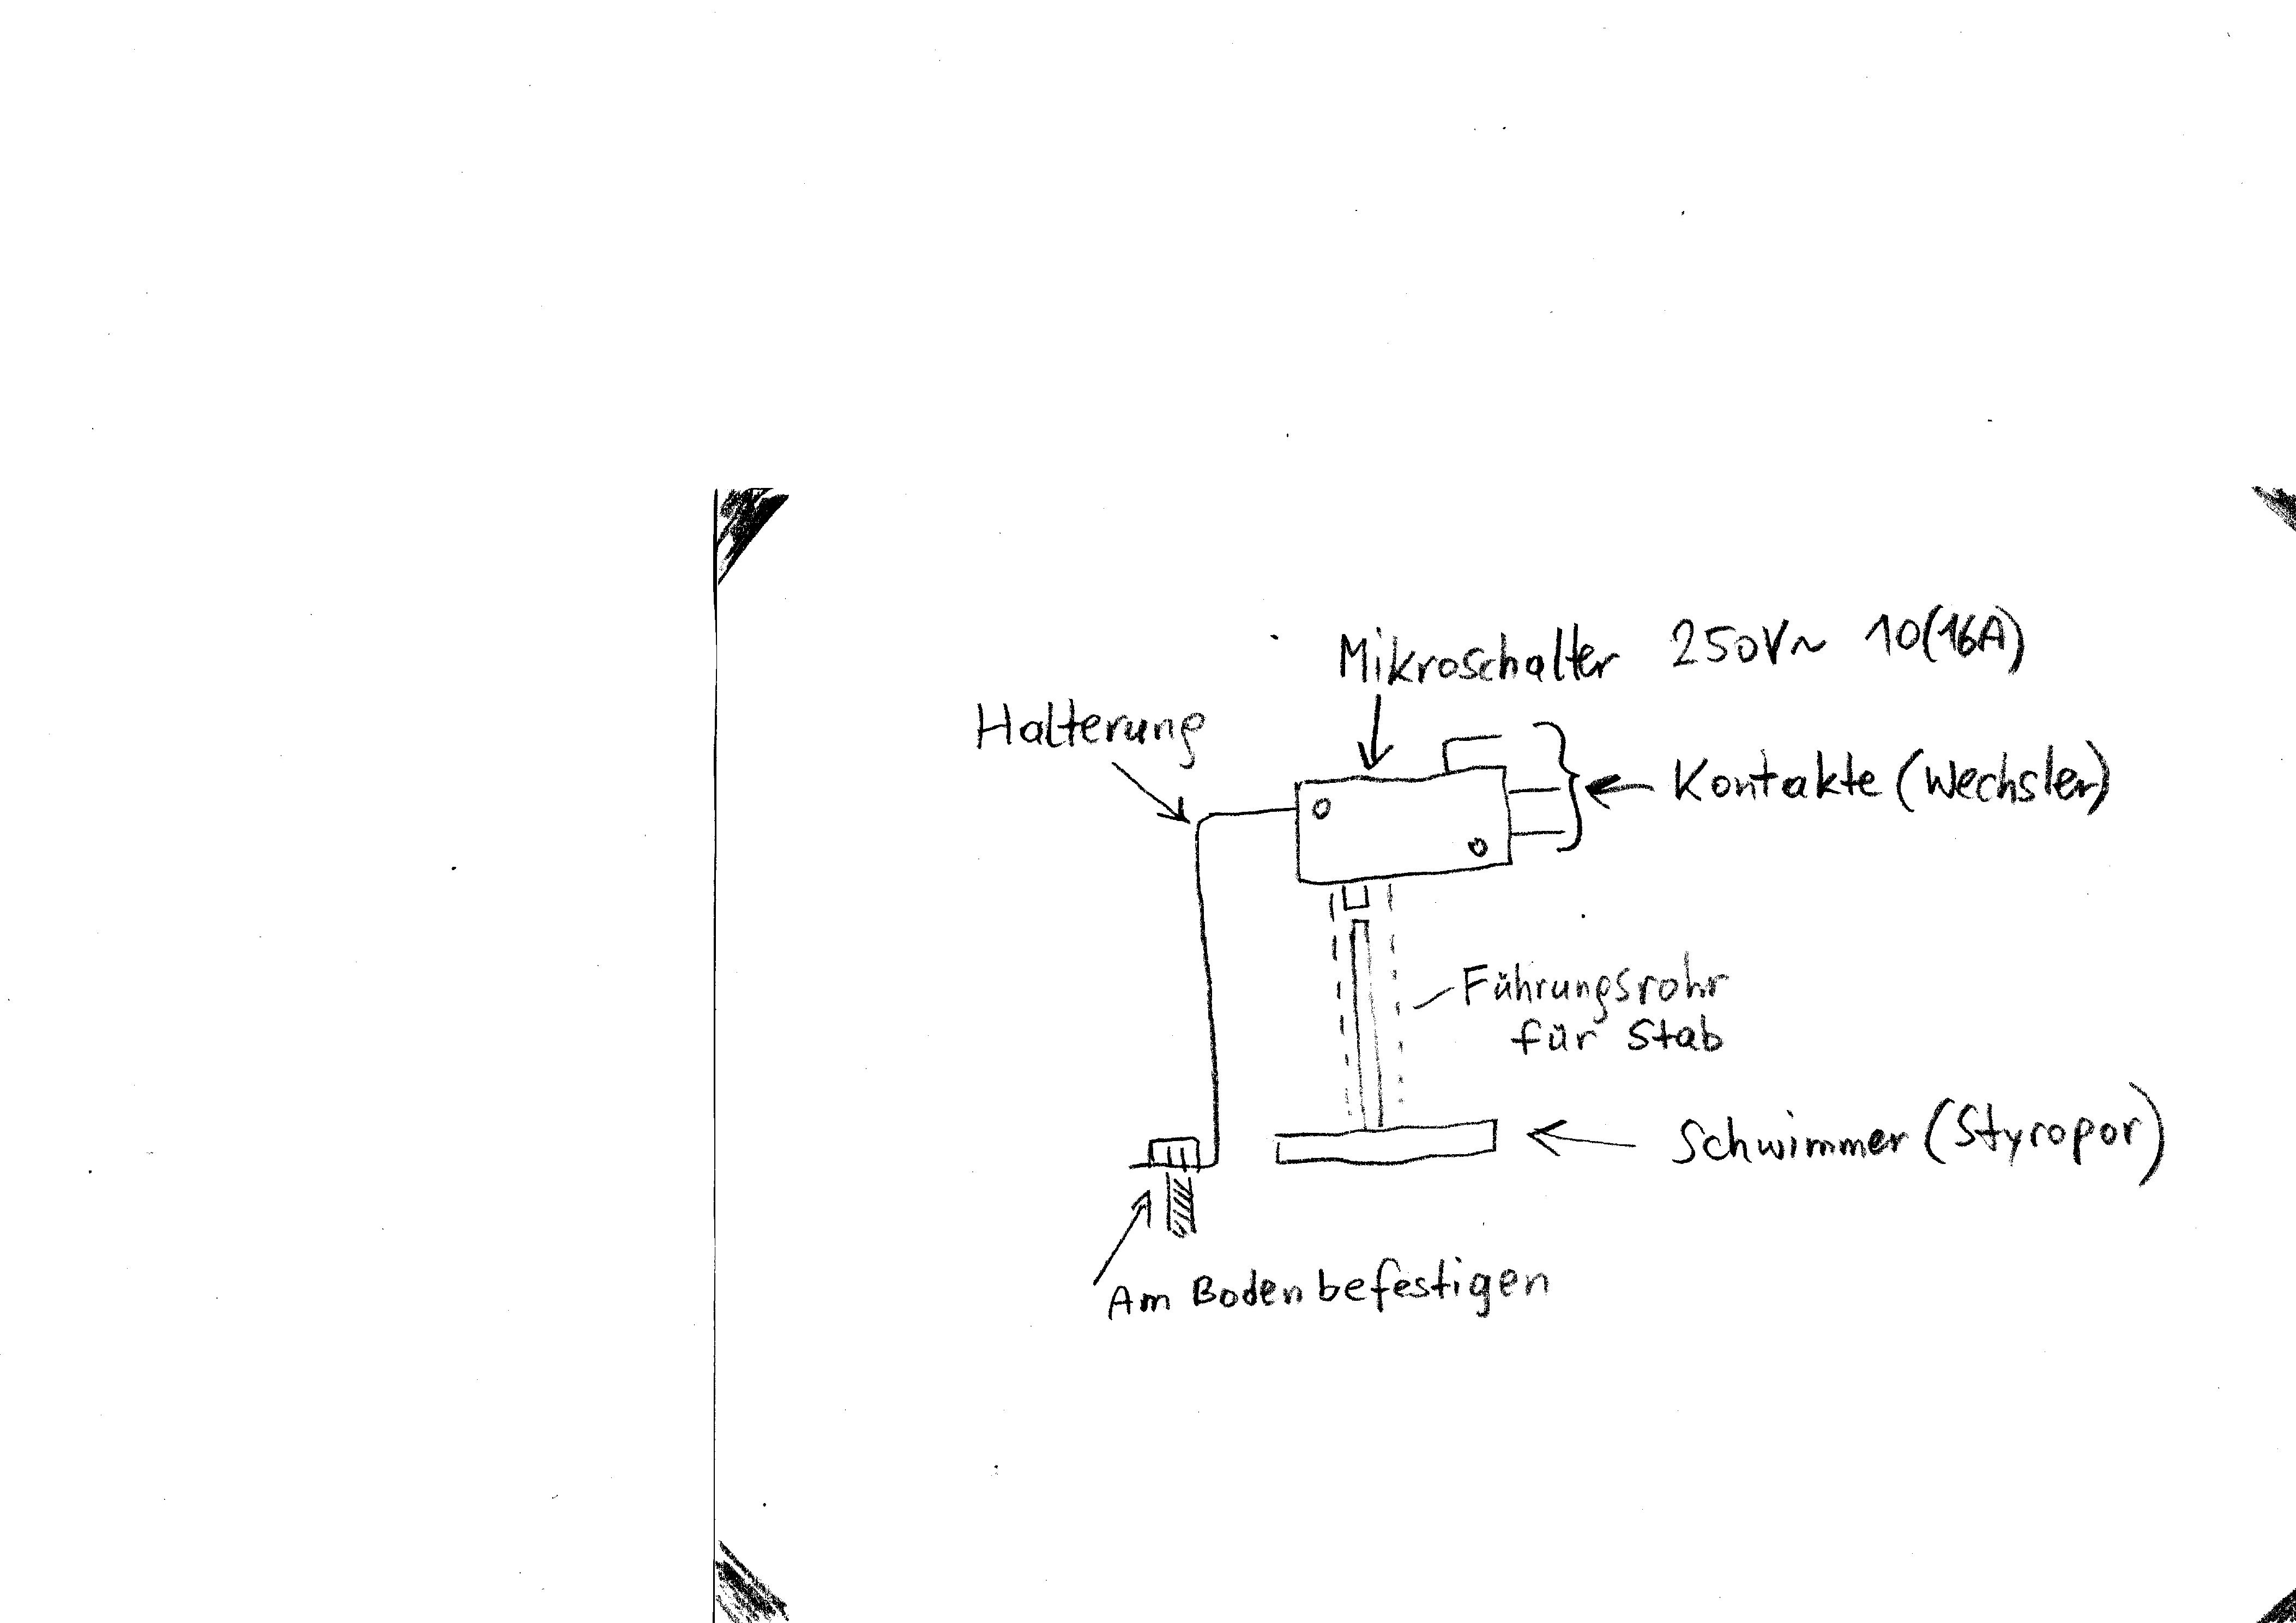 Mikroschalter 250V~ 10(16A)
Halterung
Kontakte (Wechsler)
Führungsrohr
für Stab
Schwimmer (Styropor)
Am Boden befestigen